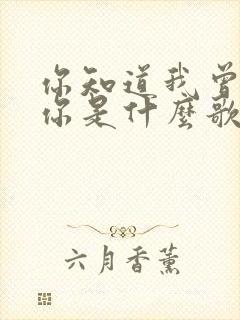 你知道我曾
你是什麼歌
六月香薰